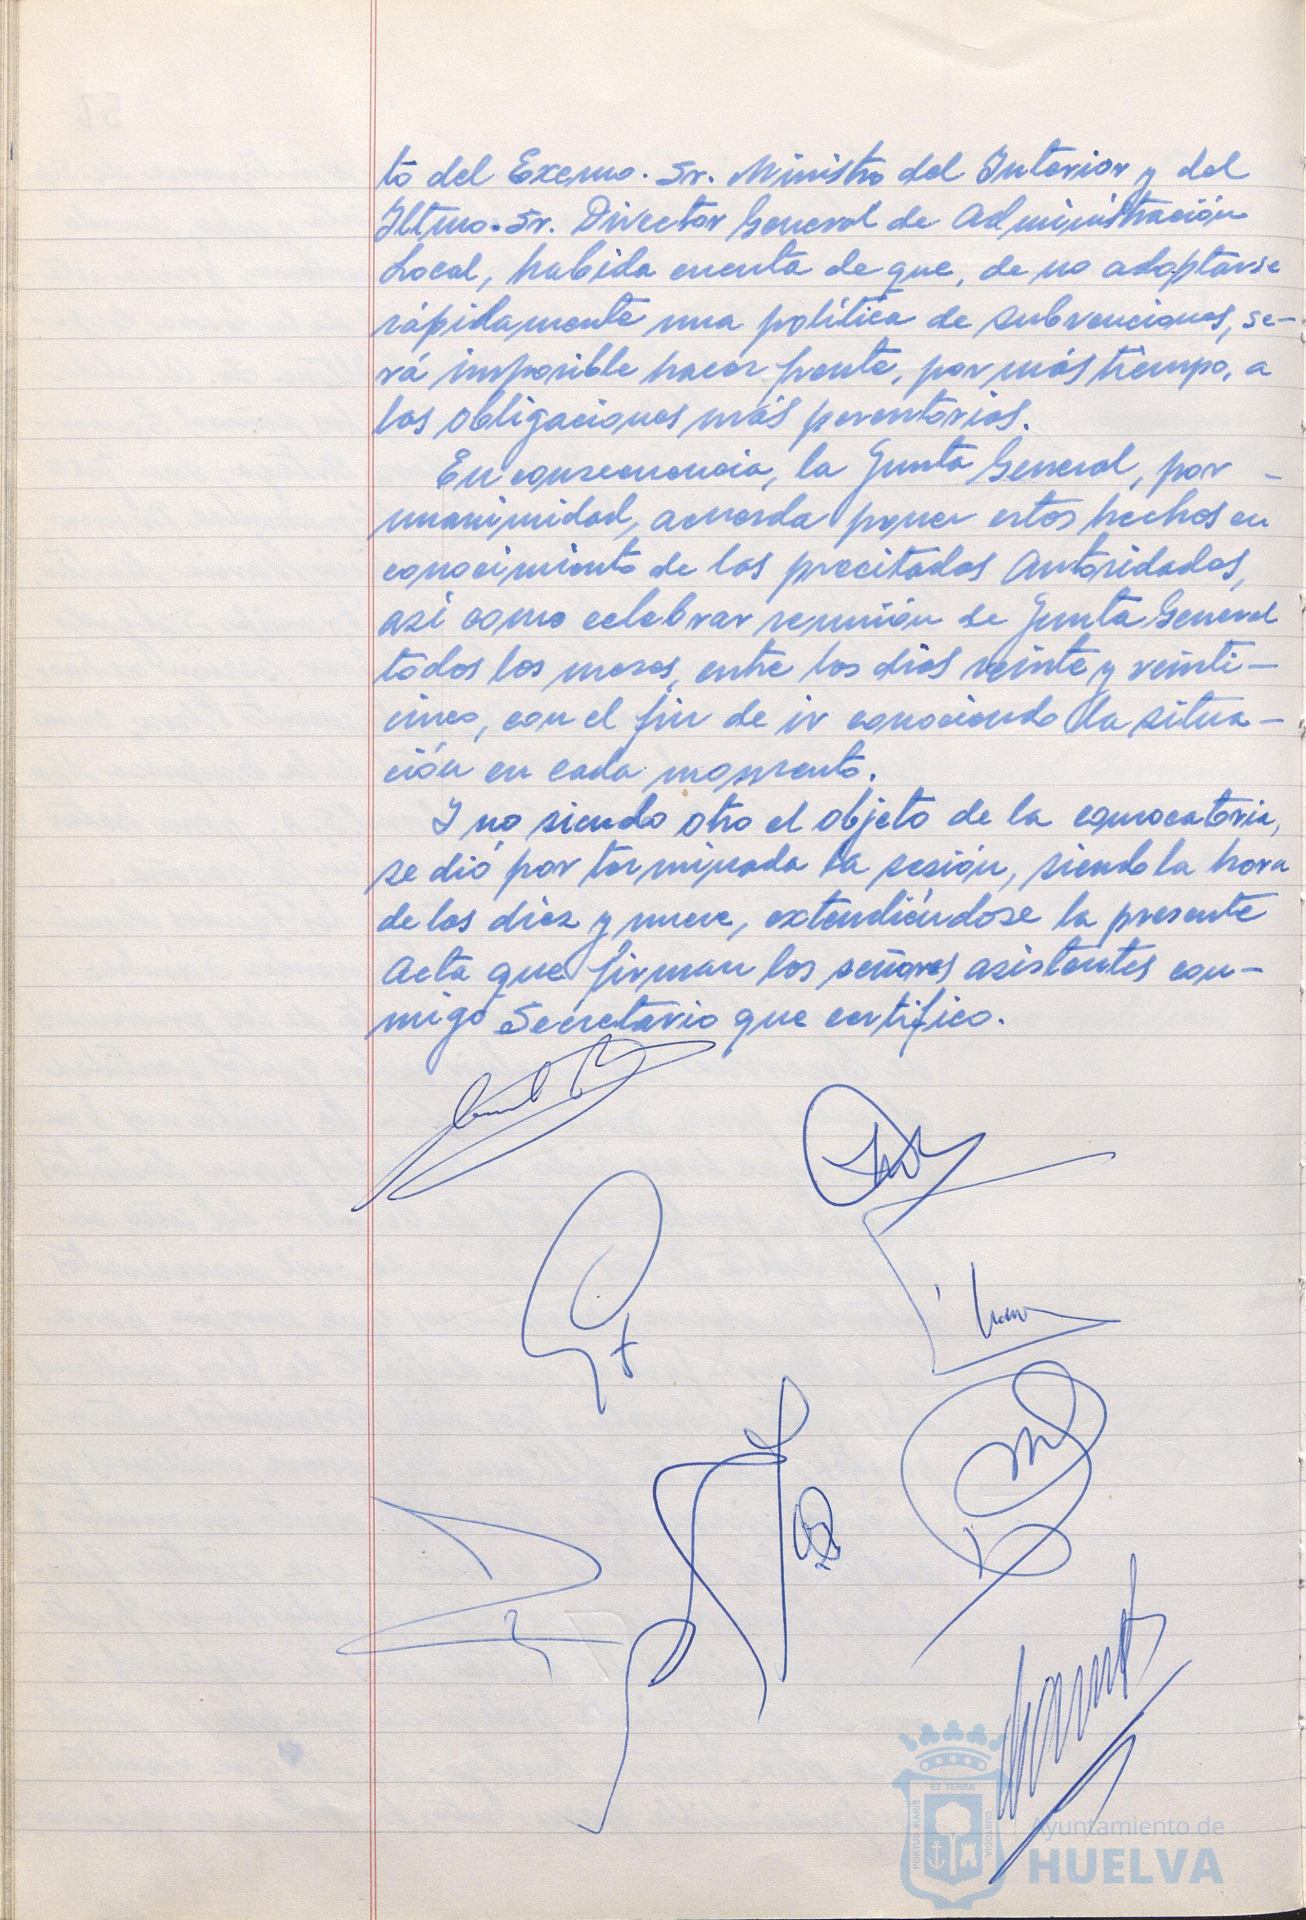 to del Excmo. Sr. Ministro del Interior y del
Iltmo. Sr. Director General de Administración
Local, habida cuenta de que, de no adoptarse
rápidamente una política de subvenciones, se-
rá imposible hacer frente, por más tiempo, a
las obligaciones más perentorias.
En consecuencia, la Junta General, por -
unanimidad, acuerda poner estos hechos en
conocimiento de las precitadas Autoridades,
así como celebrar reunión de Junta General
todos los meses, entre los días veinte y veinti-
cinco, con el fin de ir conociendo la situa-
ción en cada momento.
Y no siendo otro el objeto de la convocatoria,
se dió por terminada la sesión, siendo la hora
de las diez y nueve, extendiéndose la presente
Acta que firman los señores asistentes con-
migo Secretario que certifico.
PORTUS MARIS ET TERRÆ CUSTODIA
Ayuntamiento de
HUELVA